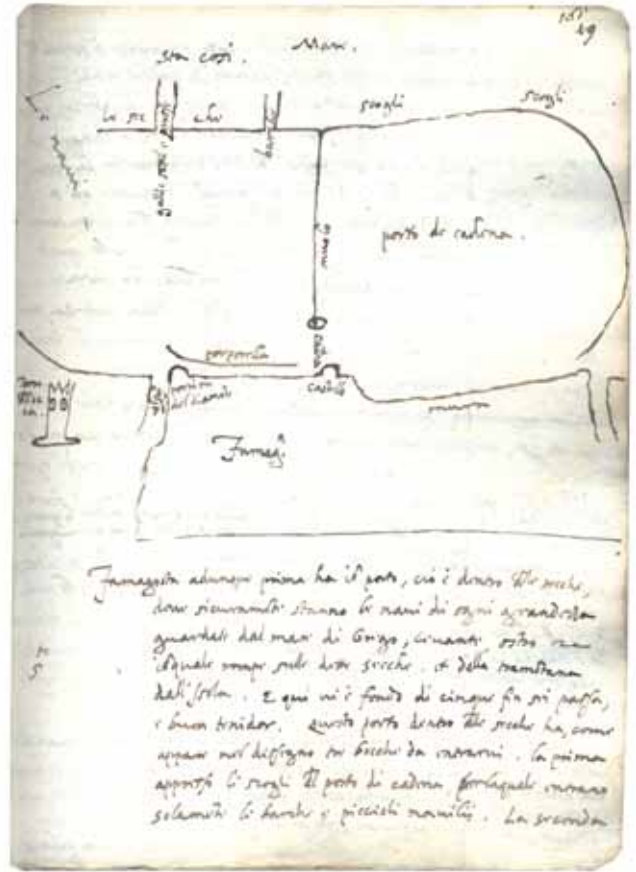 49
sta così. Mare.
scogli scogli
le sec che
barche
molo
porto di cadena.
porporella
castello
Famag.ᵃ
Famagosta adunque prima ha il porto, ciò è dentro delle secche,
dove sicuramente stanno le navi di ogni grandezza
guardate dal mar di Grego, Levante, ostro
il quale rompe sulle dette secche. et della tramontana
dall'Isola. E qui vi è fondo di cinque fin sei passa,
e buon tenidor. Questo porto dentro delle secche ha, come
appare nel dissegno tre bocche da intrarvi. la prima
appresso li scogli del porto di cadena per laquale intrano
solamente le barche e piccioli navilij. La seconda